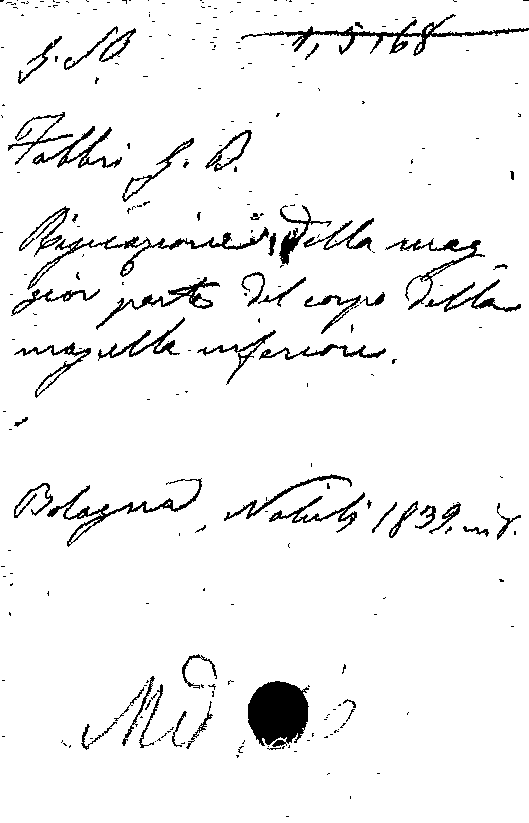 1, 5168
Fabbri G. B.
della mag
gior parte del corpo della
mascella inferiore.
Bologna, Nobili 1839. in 8.
Med